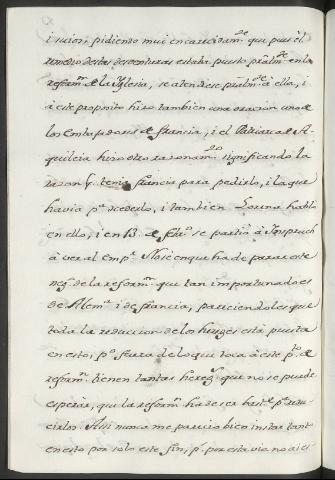 i suion, pidiendo mui encarecidam.te que pues el
remedio destas desventuras estaba puesto prãlm.te en la
reform.on de la Yglesia, se atendiese prãlm.te à ella, i
à este proposito hizo tambien una oracion uno de
los Embajadores de francia, i el Patriarca de A-
quileia hizo otro razonam.to significando la
razon q. tenia francia para pedirlo, i la que
havia p.a concederlo, i tambien Lorena hablò
en ello, i en 13. de feb.o se partiò à Ynspruch
à ver al Emp.or No sè en que ha de parar este
neg.o de la reform.on que tan importunados
de Alem.a i de francia, pareciendoles que
toda la reduccion de los hereges està puesta
en esto, p.o fuera de lo que toca à este p.to de
reform.on tienen tantas hereg.s que no se puede
esperar, que la reform.on ha de ser bast.te p.a redu-
cirlos. Assi nunca me pareciò bien instar tanto
en esto por solo este fin, p.o por esta via no ai es-